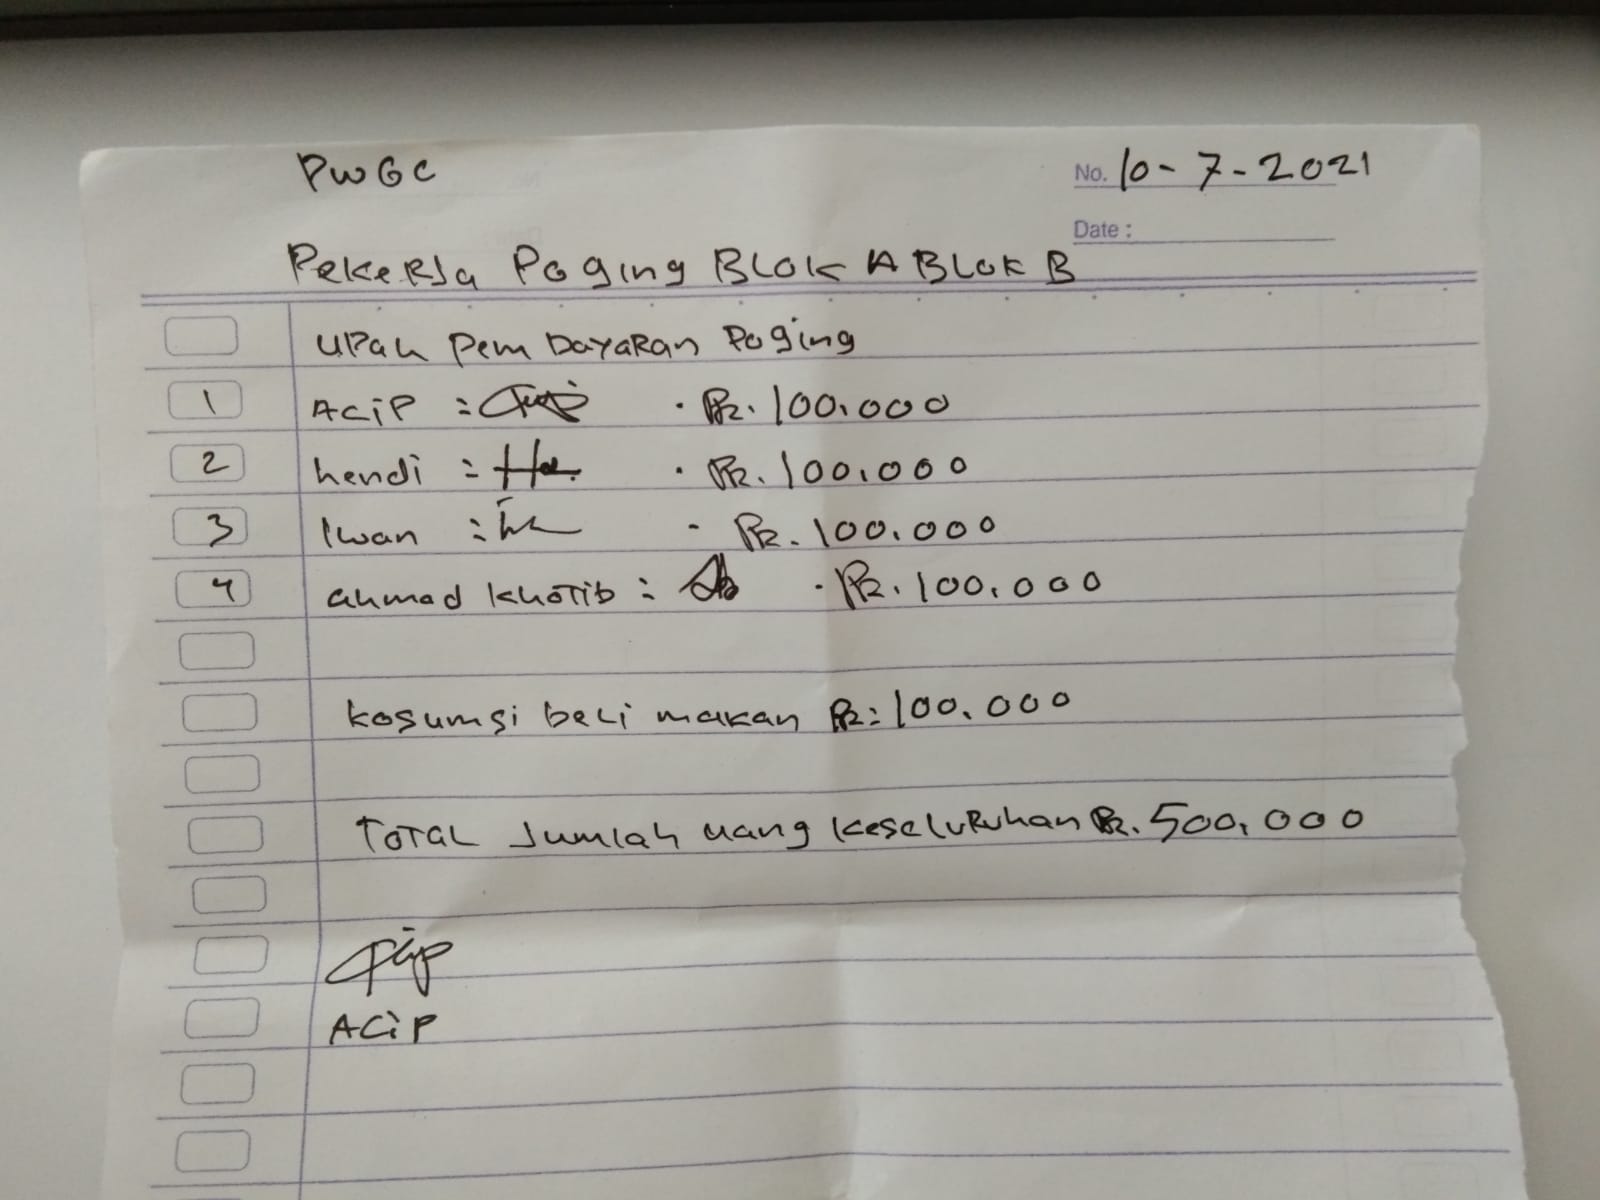 PWGC
No. 10-7-2021
Date :
Pekerja Poging Blok A Blok B
Upah pembayaran Poging
1 ACiP : · Rp. 100.000
2 hendi : · Rp. 100.000
3 Iwan : - Rp. 100.000
4 ahmad khotib : · Rp. 100.000
kosumsi beli makan Rp: 100.000
TOTAL Jumlah uang keseluruhan Rp. 500.000
ACiP